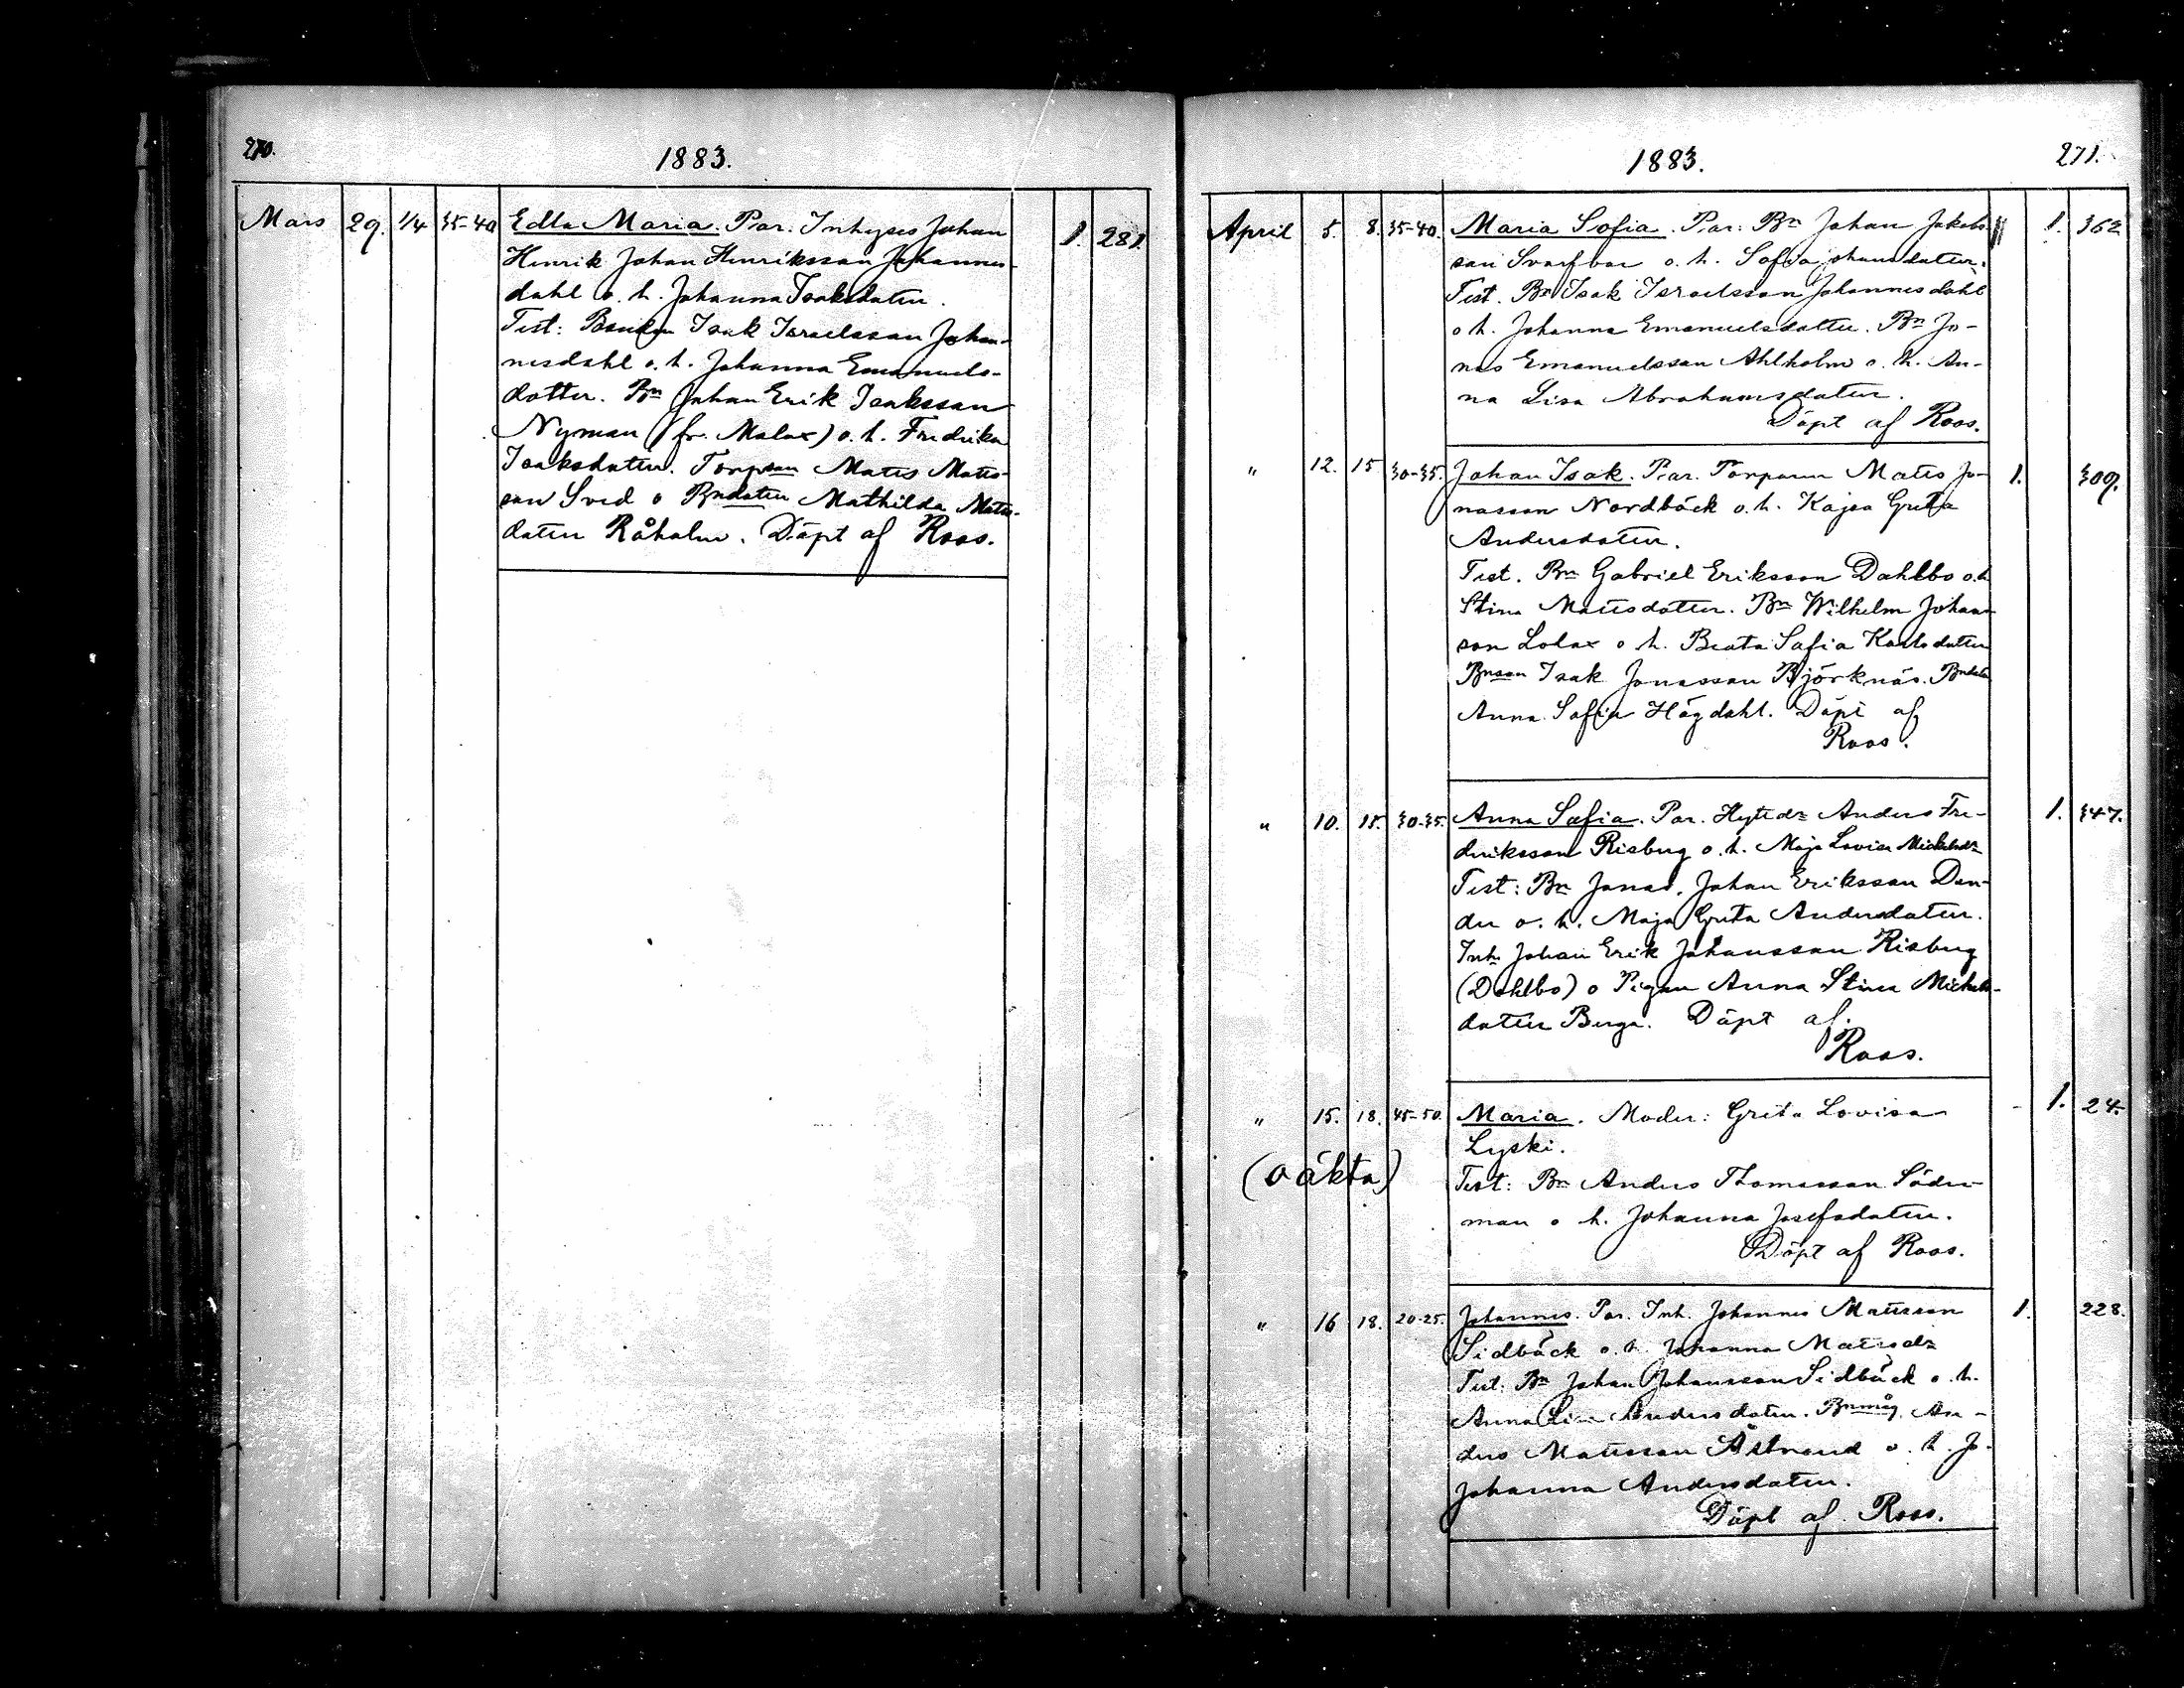 270.
1883.
Mars 29. 1/4 35-40 Edla Maria. Par. Inhyses Johan 1. 281.
Henrik Johan Henriksson Johannes-
dahl o. h. Johanna Isaksdotter.
Test: Bonden Isak Israelsson Johan-
nesdahl o. h. Johanna Emanuels-
dotter. Bn Johan Erik Isaksson
Nyman (fr. Malax) o. h. Fredrika
Isaksdotter. Torpson Matts Matts-
son Sved o Bndotter Mathilda Matts-
dotter Råholm. Döpt af Roos.
1883.
271.
April 5. 8. 35-40. Maria Sofia. Par: Bn Johan Jakobs- 1. 362
son Svarfvar o. h. Sofia Johansdotter.
Test. Bn Isak Israelsson Johannesdahl
o h. Johanna Emanuelsdotter. Bn Jo-
nas Emanuelsson Ahlholm o. h. An-
na Lisa Abrahamsdotter.
Döpt af Roos.
" 12. 15 30-35. Johan Isak. Par. Torparen Matts Jo- 1. 309.
nasson Nordbäck o. h. Kajsa Greta
Andersdotter.
Test. Bn Gabriel Eriksson Dahlbo o. h
Stina Mattsdotter. Bn Wilhelm Johans-
son Lolax o h. Beata Sofia Karlsdotter
Bnson Isak Jonasson Björknäs. Bndotter
Anna Sofia Högdahl. Döpt af
Roos.
" 10. 15. 30-35. Anna Sofia. Par. Hyteds Anders Fre- 1. 347.
driksson Risberg o. h. Maja Lovisa Mickelsdr
Test: Bn Jonas, Johan Eriksson Den-
der o. h. Maja Greta Andersdotter.
Inh. Johan Erik Johansson Risberg
(Dahlbo) o Pigan Anna Stina Mickels-
dotter Berga. Döpt af.
Roos.
" 15. 18. 45-50. Maria. Moder: Greta Lovisa - 1. 24.
Lyski.
(oäkta)
Test: Bn Anders Thomasson Söder-
man o h. Johanna Josefsdotter.
Döpt af Roos.
" 16 18. 20-25. Johannes. Par. Inh. Johannes Mattsson 1. 228.
Sidbäck o. h. Johanna Mattsdr
Test: Bn Johan Johansson Sidbäck o. h.
Anna Lisa Andersdotter. Bnmåg. An-
ders Mattsson Åstrand o. h. Jo-
Johanna Andersdotter.
Döpt af Roos.